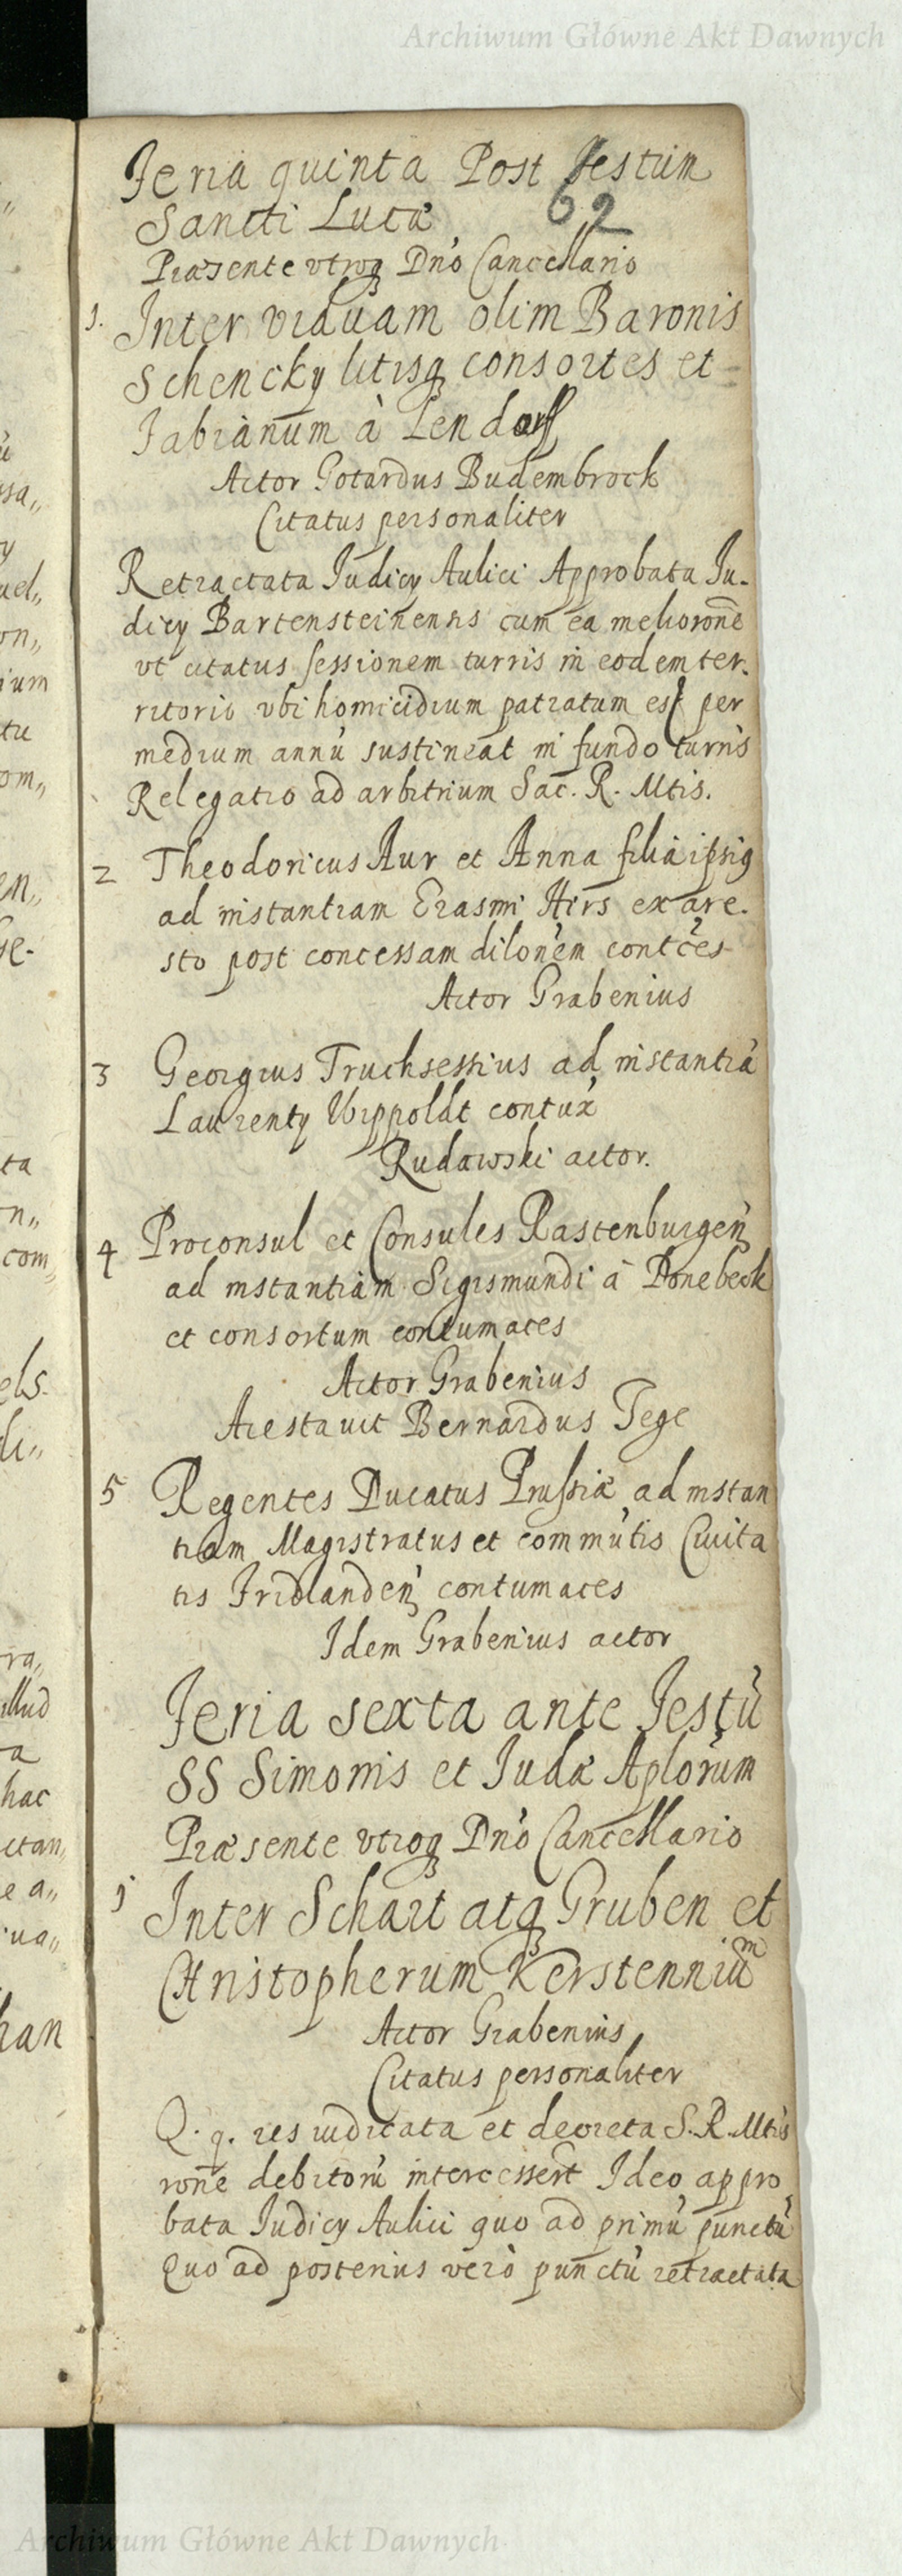 Archiwum Główne Akt Dawnych
Feria quinta Post Festum
62
Sancti Lucæ
Præsente vtroq Dno Cancellario
1. Inter viduam olim Baronis
Schencky litisq consortes et
Fabianum à Lendorf
Actor Gotardus Budembrock
Citatus personaliter
Retractata Iudicy Aulici Approbata Iu-
dicy Bartensteinensis cum ea melioronē
vt citatus sessionem turris in eodem ter-
ritorio vbi homicidium patratum est per
medium annū sustineat in fundo turris
Relegatio ad arbitrium Sac. R. Mtis.
2 Theodoricus Aur et Anna filia ipsiq
ad instantiam Erasmi Hirs ex are-
sto post concessam dilonem contces
Actor Grabenius
3 Georgius Truchsessius ad instantiā
Laurenty Wippoldt contux
Rudawski actor.
4 Proconsul et Consules Rastenburgen
ad instantiam Sigismundi à Donebeck
et consortum contumaces
Actor Grabenius
Arestauit Bernardus Tege
5 Regentes Ducatus Prussiæ ad instan
tiam Magistratus et commūtis Ciuita
tis Fridlanden contumaces
Idem Grabenius actor
Feria sexta ante Festū
SS Simonis et Iudæ Aplorum
Præsente vtroq Dno Cancellario
1 Inter Schart atq Gruben et
Christopherum Kerstennium
Actor Grabenius
Citatus personaliter
Q. q. res iudicata et decreta S. R. Mtis
rone debitorū intercesserit Ideo appro
bata Iudicy Aulici quo ad primū punctū
Quo ad posterius verò punctū retractata
Archiwum Główne Akt Dawnych